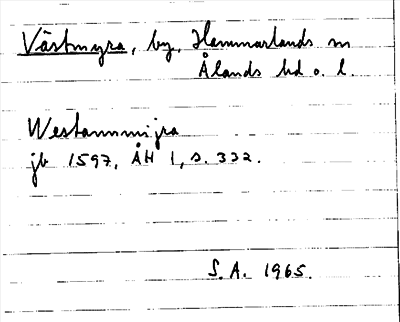 Västmyra, by, Hammarlands sn
Ålands hd o. l.
Westammijra
jb 1597, ÅH 1, s. 332.
S. A. 1965.